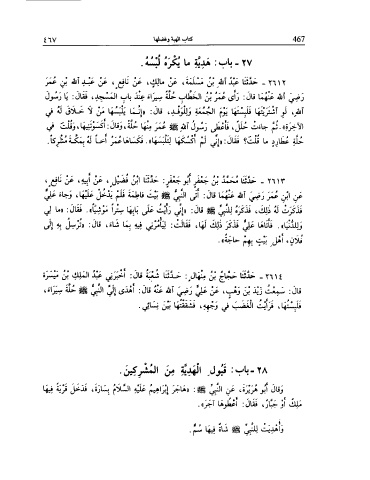 ٤٦٧
كتاب الهبة وفضلها
467
٢٧ - باب: هَدِيَّةِ ما يُكْرَهُ لُبْسُهُ.
٢٦١٢ - حَدَّثَنَا عَبْدُ اللهِ بْنُ مَسْلَمَةَ، عَنْ مالِكٍ، عَنْ نَافِعٍ، عَنْ عَبْدِ اللهِ بْنِ عُمَرَ
رَضِيَ اللهُ عَنْهُمَا قالَ: رَأَى عُمَرُ بْنُ الخَطَّابِ حُلَّةً سِيَرَاءَ عِنْدَ بابِ المَسْجِدِ، فَقَالَ: يَا رَسُولَ
اللهِ، لَوِ اشْتَرَيْتَهَا فَلَبِسْتَهَا يَوْمَ الجُمُعَةِ وَلِلْوَفْدِ، قالَ: «إِنَّمَا يَلْبَسُهَا مَنْ لَا خَلَاقَ لَهُ في
الآخِرَةِ». ثُمَّ جاءَتْ حُلَلٌ، فَأَعْطَى رَسُولُ اللهِ ﷺ عُمَرَ مِنْهَا حُلَّةً، وَقالَ: أَكَسَوْتَنِيهَا، وَقُلْتَ في
حُلَّةِ عُطَارِدٍ ما قُلْتَ؟ فَقَالَ: «إِنِّي لَمْ أَكْسُكَهَا لِتَلْبَسَهَا». فَكَسَاهَا عُمَرُ أَخاً لَهُ بِمَكَّةَ مُشْرِكاً.
٢٦١٣ - حَدَّثَنَا مُحَمَّدُ بْنُ جَعْفَرٍ أَبُو جَعْفَرٍ: حَدَّثَنَا ابْنُ فُضَيْلٍ، عَنْ أَبِيهِ، عَنْ نَافِعٍ،
عَنِ ابْنِ عُمَرَ رَضِيَ اللهُ عَنْهُمَا قالَ: أَتَى النَّبِيُّ ﷺ بَيْتَ فاطِمَةَ فَلَمْ يَدْخُلْ عَلَيْهَا، وَجاءَ عَلِيٌّ
فَذَكَرَتْ لَهُ ذلِكَ، فَذَكَرَهُ لِلنَّبِيِّ ﷺ قالَ: «إِنِّي رَأَيْتُ عَلَى بَابِهَا سِتْراً مَوْشِيّاً». فَقَالَ: «ما لِي
وَلِلدُّنْيَا». فَأَتَاهَا عَلِيٌّ فَذَكَرَ ذلِكَ لَهَا، فَقَالَتْ: لِيَأْمُرْنِي فِيهِ بِمَا شَاءَ، قالَ: «تُرْسِلُ بِهِ إِلَى
فُلَانٍ، أَهْلِ بَيْتٍ بِهِمْ حاجَةٌ».
٢٦١٤ - حَدَّثَنَا حَجَّاجُ بْنُ مِنْهَالٍ: حَدَّثَنَا شُعْبَةُ قالَ: أَخْبَرَنِي عَبْدُ المَلِكِ بْنُ مَيْسَرَةَ
قالَ: سَمِعْتُ زَيْدَ بْنَ وَهْبٍ، عَنْ عَلِيٍّ رَضِيَ اللهُ عَنْهُ قالَ: أَهْدَى إِلَيَّ النَّبِيُّ ﷺ حُلَّةَ سِيَرَاءَ،
فَلَبِسْتُهَا، فَرَأَيْتُ الْغَضَبَ في وَجْهِهِ، فَشَقَقْتُهَا بَيْنَ نِسَائِي.
٢٨ - باب: قَبُولِ الْهَدِيَّةِ مِنَ الْمُشْرِكِينَ.
وَقالَ أَبُو هُرَيْرَةَ، عَنِ النَّبِيِّ ﷺ: «هَاجَرَ إِبْرَاهِيمُ عَلَيْهِ السَّلَامُ بِسَارَةَ، فَدَخَلَ قَرْيَةً فِيهَا
مَلِكٌ أَوْ جَبَّارٌ، فَقَالَ: أَعْطُوهَا آجَرَ».
وَأُهْدِيَتْ لِلنَّبِيِّ ﷺ شَاةٌ فِيهَا سُمٌّ.